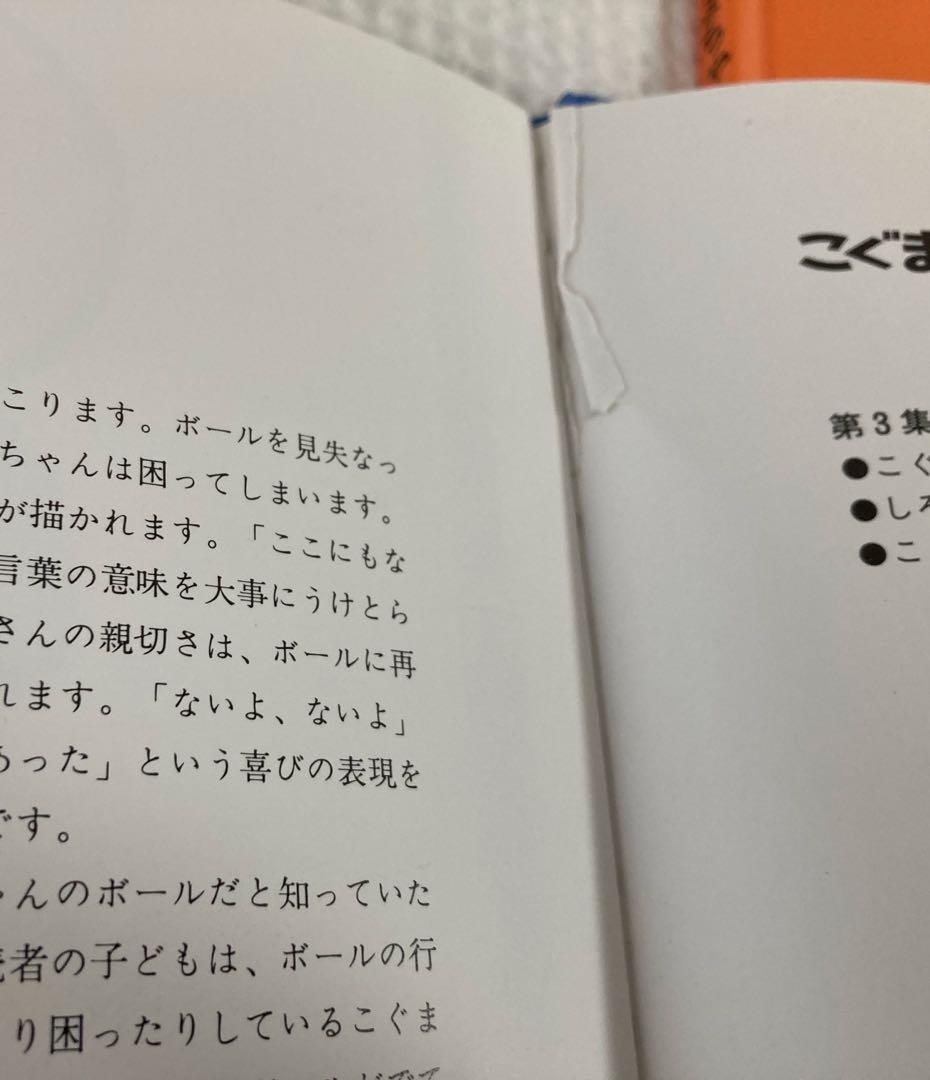 こります。ボールを見失なっ
ちゃんは困ってしまいます。
が描かれます。「ここにもな
言葉の意味を大事にうけとら
さんの親切さは、ボールに再
れます。「ないよ、ないよ」
あった」という喜びの表現を
です。
ゃんのボールだと知っていた
読者の子どもは、ボールの行
り困ったりしているこぐま
こぐま
第3集
●こぐ
●しろ
●こ